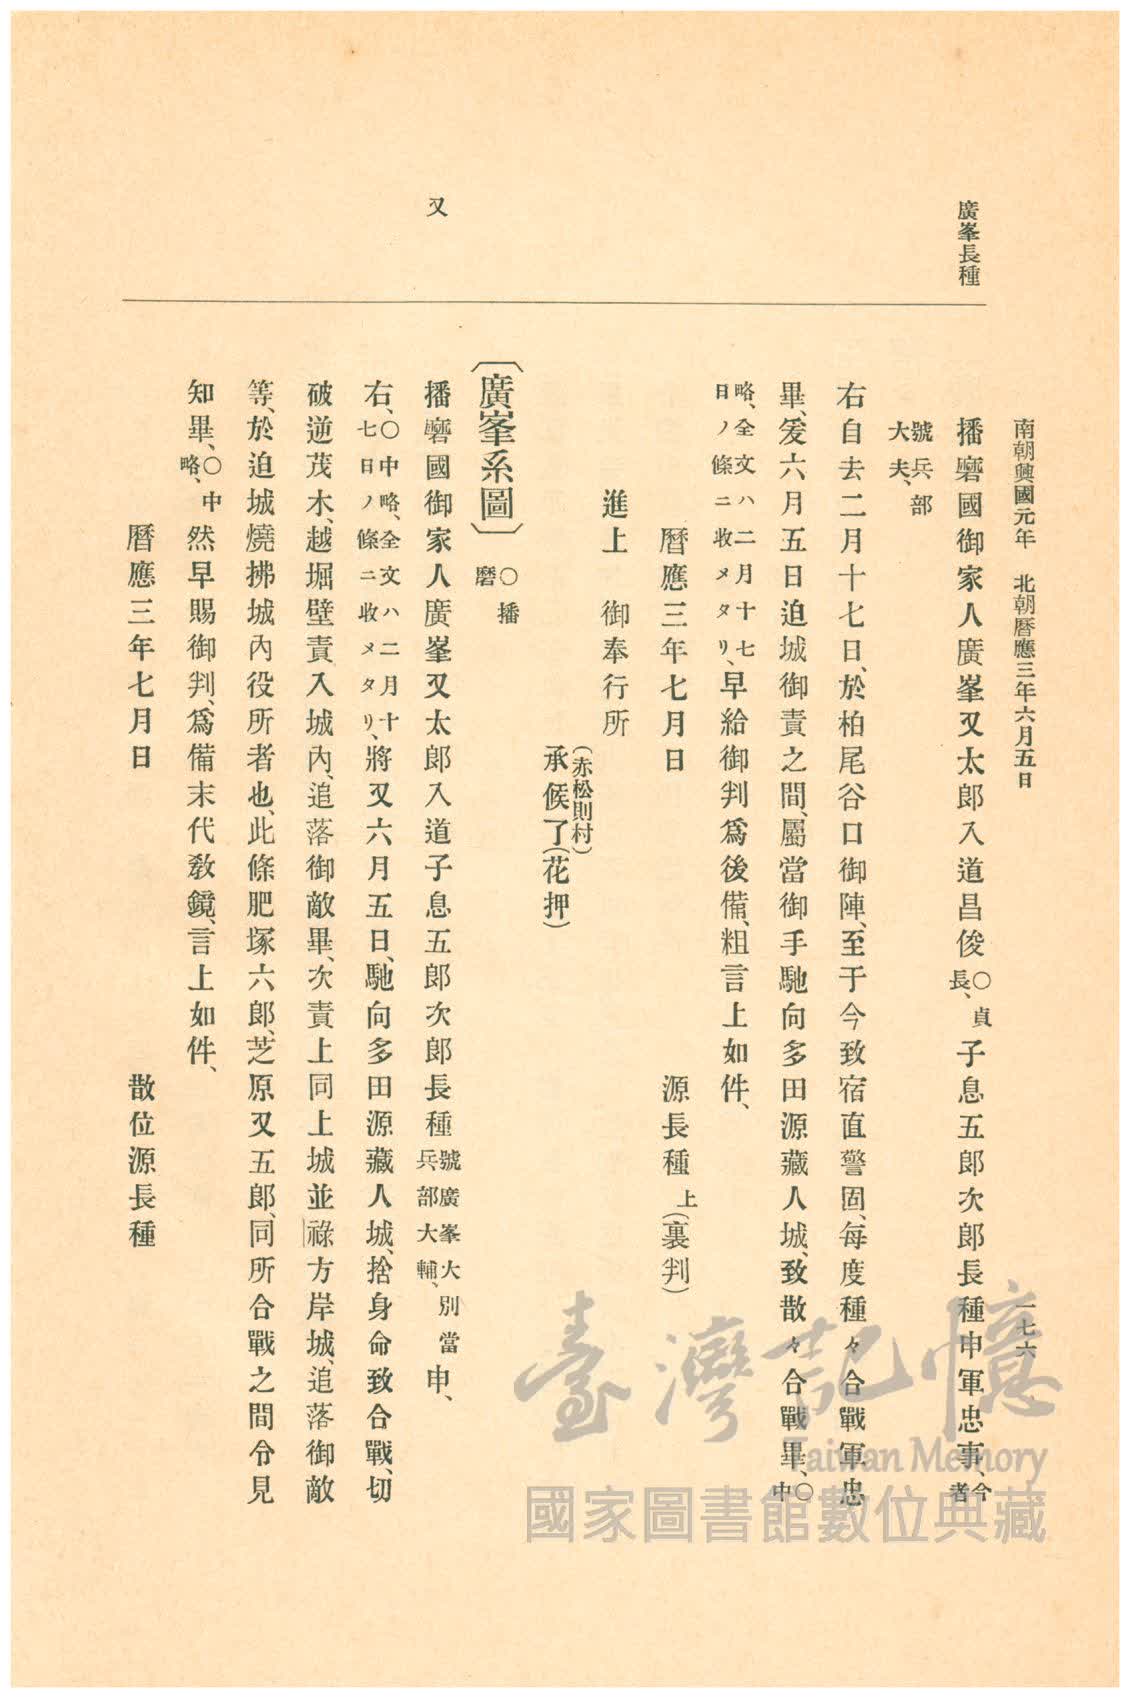 南朝興國元年　北朝曆應三年六月五日
一七六
廣峯長種
播磨國御家人廣峯又太郎入道昌俊○貞長、子息五郎次郎長種申軍忠事、今者
號兵部大夫、
右自去二月十七日、於柏尾谷口御陣、至于今致宿直警固、每度種々合戰軍忠
畢、爰六月五日迫城御責之間、屬當御手馳向多田源藏人城、致散々合戰畢、○中
略、全文ハ二月十七日ノ條ニ收メタリ、早給御判爲後備、粗言上如件、
曆應三年七月日　源長種上（裏判）
進上　御奉行所
（赤松則村）
承候了（花押）
〔廣峯系圖〕○播磨
又
播磨國御家人廣峯又太郎入道子息五郎次郎長種號廣峯大別當兵部大輔、申、
右、○中略、全文ハ二月十七日ノ條ニ收メタリ、將又六月五日、馳向多田源藏人城、捨身命致合戰、切
破逆茂木、越堀壁責入城內、追落御敵畢、次責上同上城並祿方岸城、追落御敵
等、於迫城燒拂城內役所者也、此條肥塚六郎、芝原又五郎、同所合戰之間令見
知畢、○中略、然早賜御判、爲備末代敎鏡、言上如件、
曆應三年七月日　散位源長種
臺灣記憶
Taiwan Memory
國家圖書館數位典藏